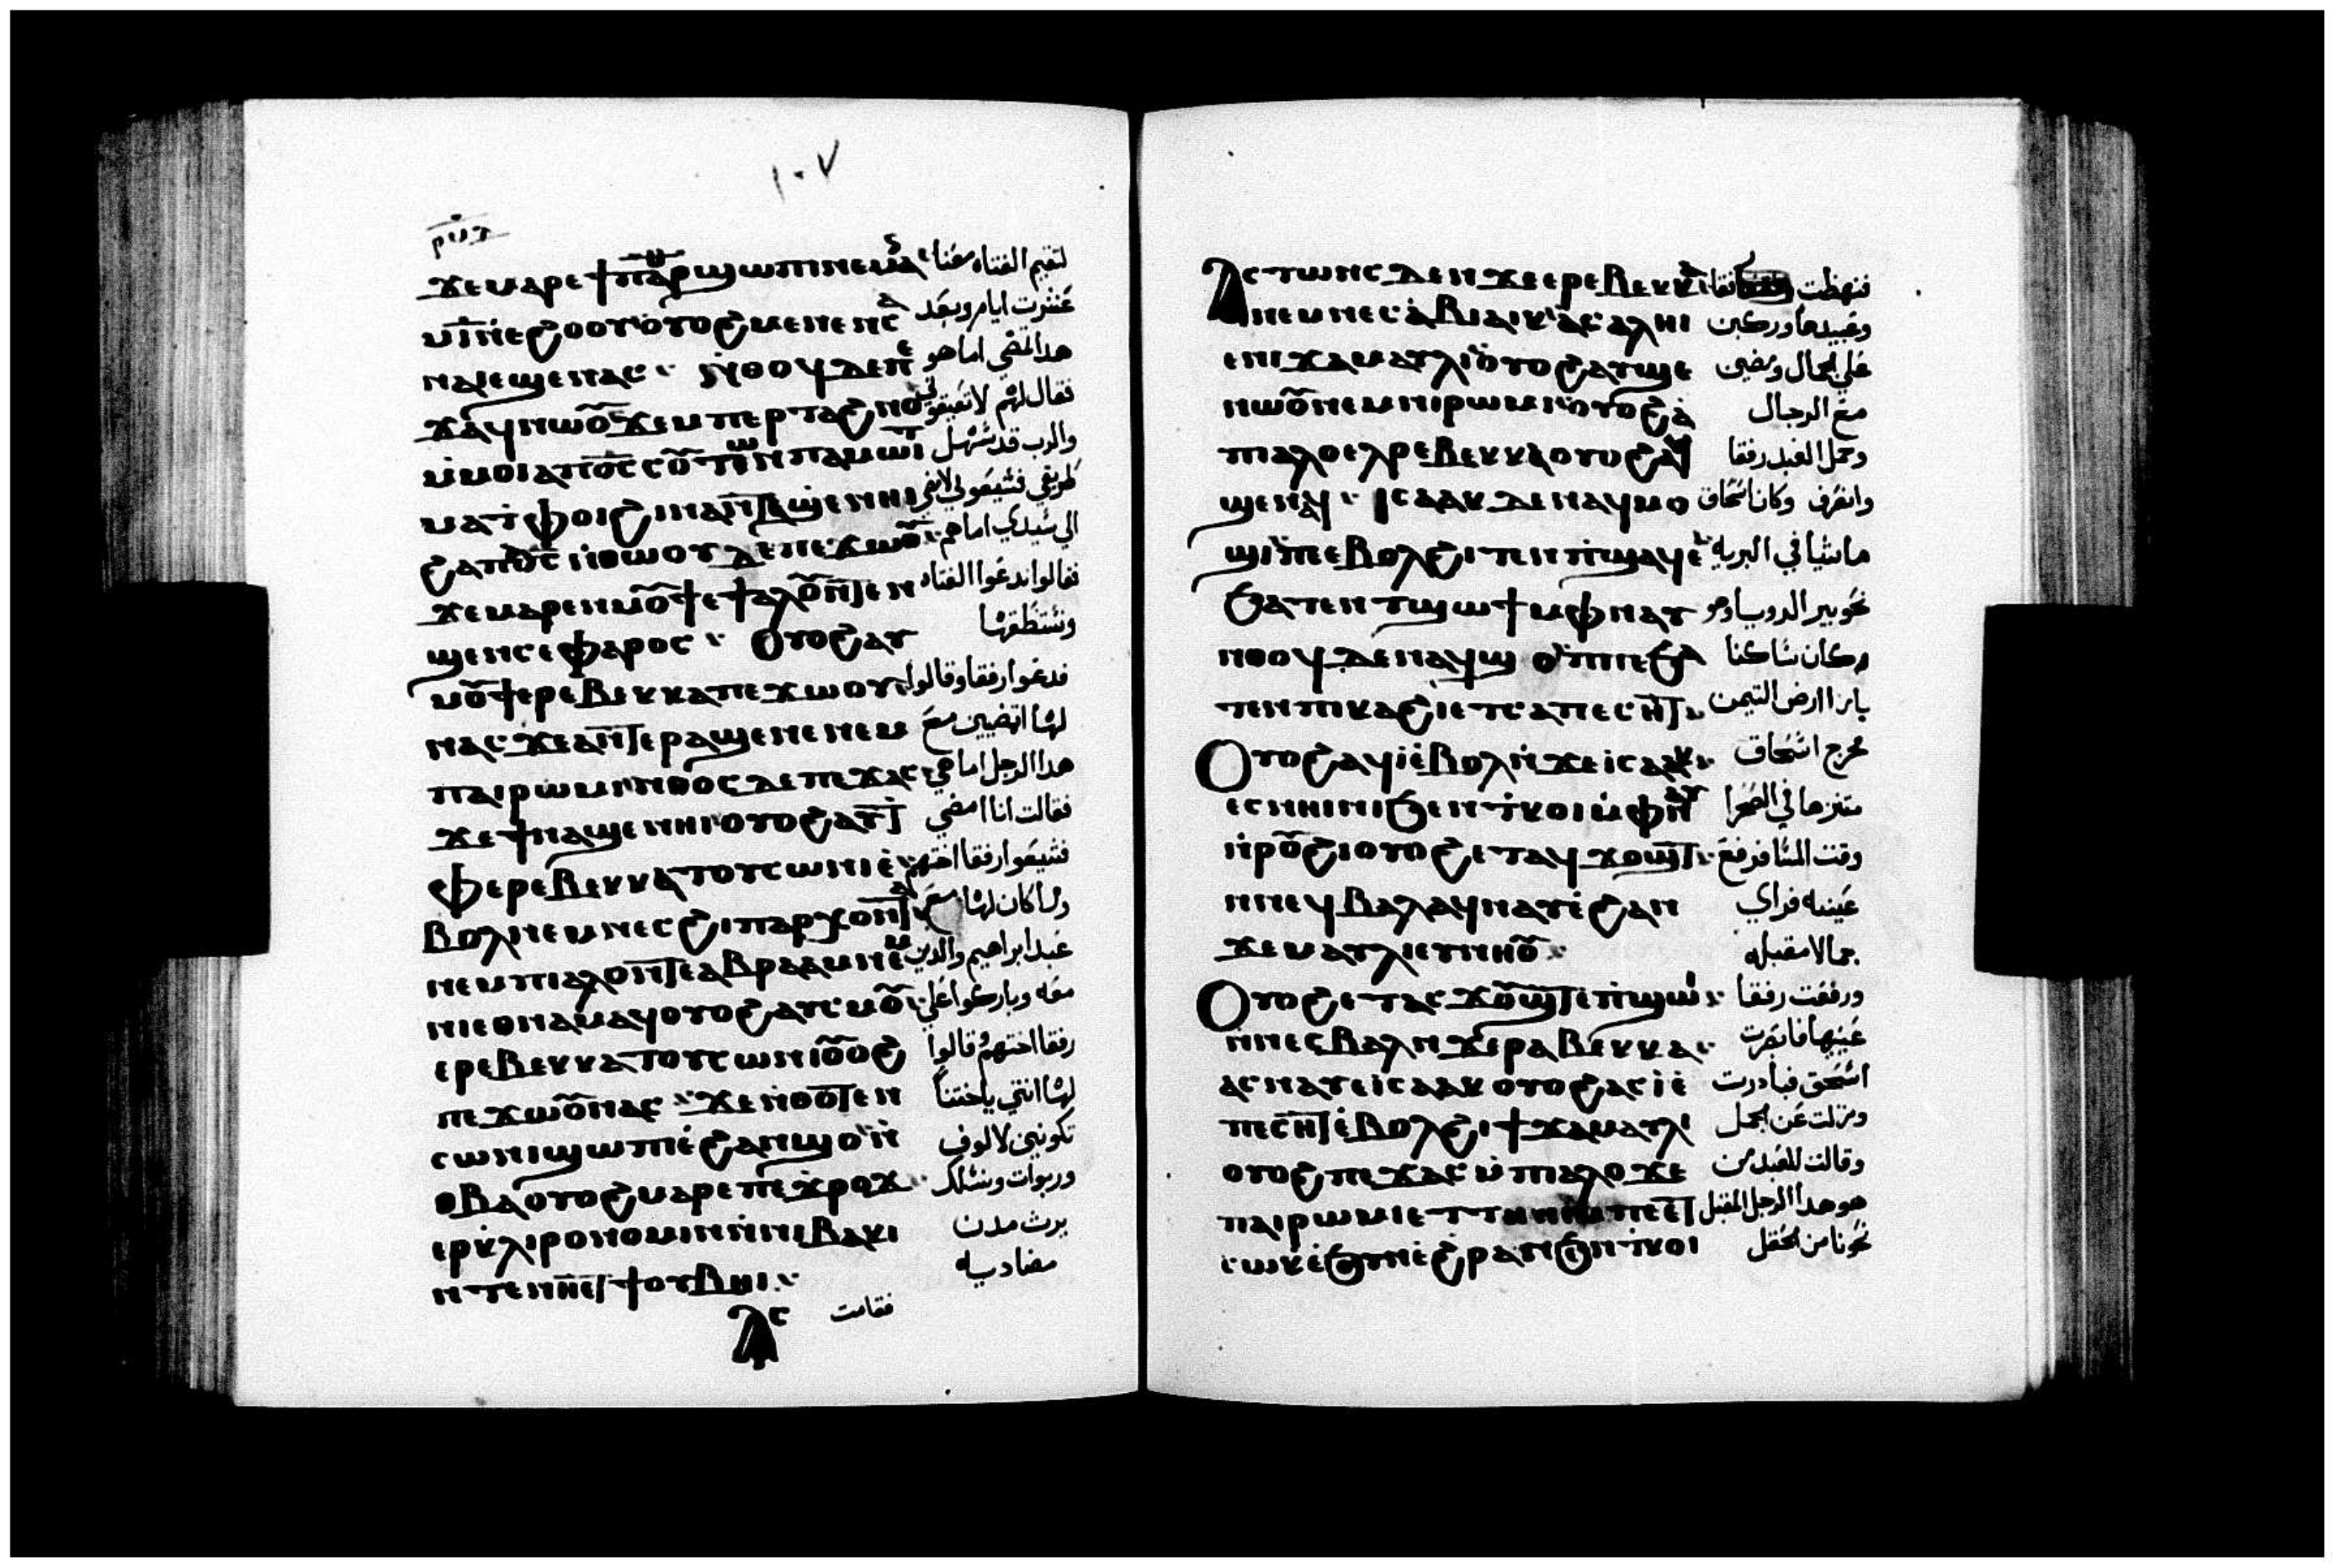 ١٠٧
ϫⲉⲙⲁⲣⲉϯⲡⲁⲣϣⲱⲡⲓⲛⲉⲙⲁ لتقيم الفتاه معنا
ⲙⲓⲛⲉϩⲟⲟⲩⲟⲩⲟϩⲙⲉⲛⲉⲛⲥⲁ عشرت ايام وبعد
ⲛⲁⲓⲉϣⲉⲛⲁⲥ ⲛⲑⲟϥⲇⲉⲡⲉ هدا تمضي اما هو
ϫⲁϥⲛⲱⲟⲩϫⲉⲙⲡⲉⲣⲧⲁϩⲛⲟ فقال لهم لا تعيقوني
ⲙⲙⲟⲓⲁⲡⲟⲥⲥⲟⲩⲧⲱⲛⲡⲁⲙⲱⲓⲧ والرب قد سهل
ⲙⲁⲧⲫⲟⲓϩⲓⲛⲁⲛⲧⲁϣⲉⲛⲏⲓ طريقي فشيعوني لامضي
ϩⲁⲡⲟⲥⲛⲑⲱⲟⲩⲇⲉⲡⲉϫⲱⲟⲩ الي سيدي اما هم
ϫⲉⲙⲁⲣⲉⲛⲙⲟⲩϯⲉϯⲁⲗⲟⲩⲛⲧⲉⲛ فقالوا ندعوا الفتاه
ϣⲉⲛⲥⲉⲫⲁⲣⲟⲥ ⲟⲩⲟϩⲁⲩ ونستنطقها
ⲙⲟⲩϯⲉⲣⲉⲃⲉⲕⲕⲁⲡⲉϫⲱⲟⲩ فدعوا رفقا وقالوا
ⲛⲁⲥϫⲉⲁⲛⲧⲉⲣⲁϣⲉⲛⲉⲛⲉⲙ لها اتمضيين مع
ⲡⲁⲓⲣⲱⲙⲓⲛⲑⲟⲥⲇⲉⲡⲉϫⲁⲥ هدا الرجل اما هي
ϫⲉϯⲛⲁϣⲉⲛⲏⲓⲟⲩⲟϩⲁⲩⲧ فقالت انا امضي
ⲫⲉⲣⲉⲃⲉⲕⲕⲁⲧⲟⲩⲥⲱⲛⲓⲉ فشيعوا رفقا اختهم
ⲃⲟⲗⲛⲉⲙⲛⲉⲥϩⲓⲡⲁⲣⲭⲟⲛⲧⲁ وما كان لها مع
ⲛⲉⲙⲡⲓⲁⲗⲟⲩⲛⲧⲉⲁⲃⲣⲁⲁⲙⲛⲉⲙ عبد ابراهيم والدين
ⲛⲓⲉⲑⲛⲁⲙⲁϥⲟⲩⲟϩⲁⲩⲥⲙⲟⲩ معه وباركوا علي
ⲉⲣⲉⲃⲉⲕⲕⲁⲧⲟⲩⲥⲱⲛⲓⲟⲩⲟϩ رفقا اختهم وقالوا
ⲡⲉϫⲱⲟⲩⲛⲁⲥ ϫⲉⲛⲑⲟⲧⲉⲛ لها انتي يا اختنا
ⲥⲱⲛⲓϣⲱⲡⲓⲉϩⲁⲛϣⲟⲛ تكونين لالوف
ⲑⲃⲁⲟⲩⲟϩⲙⲁⲣⲉⲡⲉϫⲣⲟϫ وربوات ونسلك
ⲉⲣⲕⲗⲓⲣⲟⲛⲟⲙⲓⲛⲛⲛⲓⲃⲁⲕⲓ يرث مدن
ⲛⲧⲉⲛⲏⲉⲧϯⲟⲩⲃⲏⲓ مضاديه
ⲁⲥ فقامت
ⲁⲥⲧⲱⲛⲥⲇⲉⲛϫⲉⲉⲣⲉⲃⲉⲕⲕⲁ فنهظت رفقا
ⲛⲉⲙⲛⲉⲥⲁⲃⲓⲁⲓⲕⲁⲥⲁⲗⲏⲓ وعبيدها وركبن
ⲉⲛⲓϫⲁⲙⲁⲩⲗⲓⲟⲩⲟϩⲁⲩϣⲉ علي الجمال ومضين
ⲛⲱⲟⲩⲛⲉⲙⲛⲓⲣⲱⲙⲓⲟⲩⲟϩⲁ مع الرجال
ⲡⲓⲁⲗⲟⲉⲗⲣⲉⲃⲉⲕⲕⲁⲟⲩⲟϩⲁϥ وحمل العبد رفقا
ϣⲉⲛⲁϥ ⲓⲥⲁⲁⲕⲇⲉⲛⲁϥⲙⲟ وانصرف وكان اسحاق
ϣⲓⲡⲉⲃⲟⲗϩⲓⲧⲉⲛⲡϣⲁϥⲉ ماشيا في البريه
ϧⲁⲧⲉⲛⲧϣⲱϯⲙⲫⲛⲁⲩ نحو بير الدوبيا وهو
ⲛⲑⲟϥⲇⲉⲛⲁϥϣⲟⲡⲡⲉϧⲁ وكان ساكنا
ⲧⲉⲛⲡⲓⲕⲁϩⲓⲉⲧⲥⲁⲡⲉⲥⲏⲧ بازا ارض التيمن
ⲟⲩⲟϩⲁϥⲓⲉⲃⲟⲗⲛϫⲉⲓⲥⲁⲁⲕ خرج اسحاق
ⲉⲥⲛⲏⲓⲛⲓϧⲉⲛⲧⲕⲟⲓⲙⲫⲛⲁⲩ متنزها في الصحرا
ⲛⲣⲟⲩϩⲓⲟⲩⲟϩⲉⲧⲁϥϫⲟⲩϣⲧ وقت المسا فرفع
ⲛⲛⲉϥⲃⲁⲗⲁϥⲛⲁⲩⲉϩⲁⲛ عينيه فراي
ϫⲉⲙⲁⲩⲗⲓⲉⲩⲛⲏⲟⲩ جمالا مقبله
ⲟⲩⲟϩⲉⲧⲁⲥϫⲟⲩϣⲧⲉⲡϣⲱⲓ ورفعت رفقا
ⲛⲛⲉⲥⲃⲁⲗⲛϫⲉⲣⲁⲃⲉⲕⲕⲁ عينيها فابصرت
ⲁⲥⲛⲁⲩⲉⲓⲥⲁⲁⲕⲟⲩⲟϩⲁⲥⲓⲉ اسحق فبادرت
ⲡⲉⲥⲏⲧⲉⲃⲟⲗϩⲓϯϫⲁⲙⲁⲩⲗⲓ ونزلت عن الجمل
ⲟⲩⲟϩⲡⲉϫⲁⲥⲙⲡⲓⲁⲗⲟϫⲉ وقالت للعبد من
ⲡⲁⲓⲣⲱⲙⲓⲉⲧ هو هدا الرجل المقبل
ⲉϩⲣⲁⲛϧⲛⲧⲕⲟⲓ نحونا من الحقل